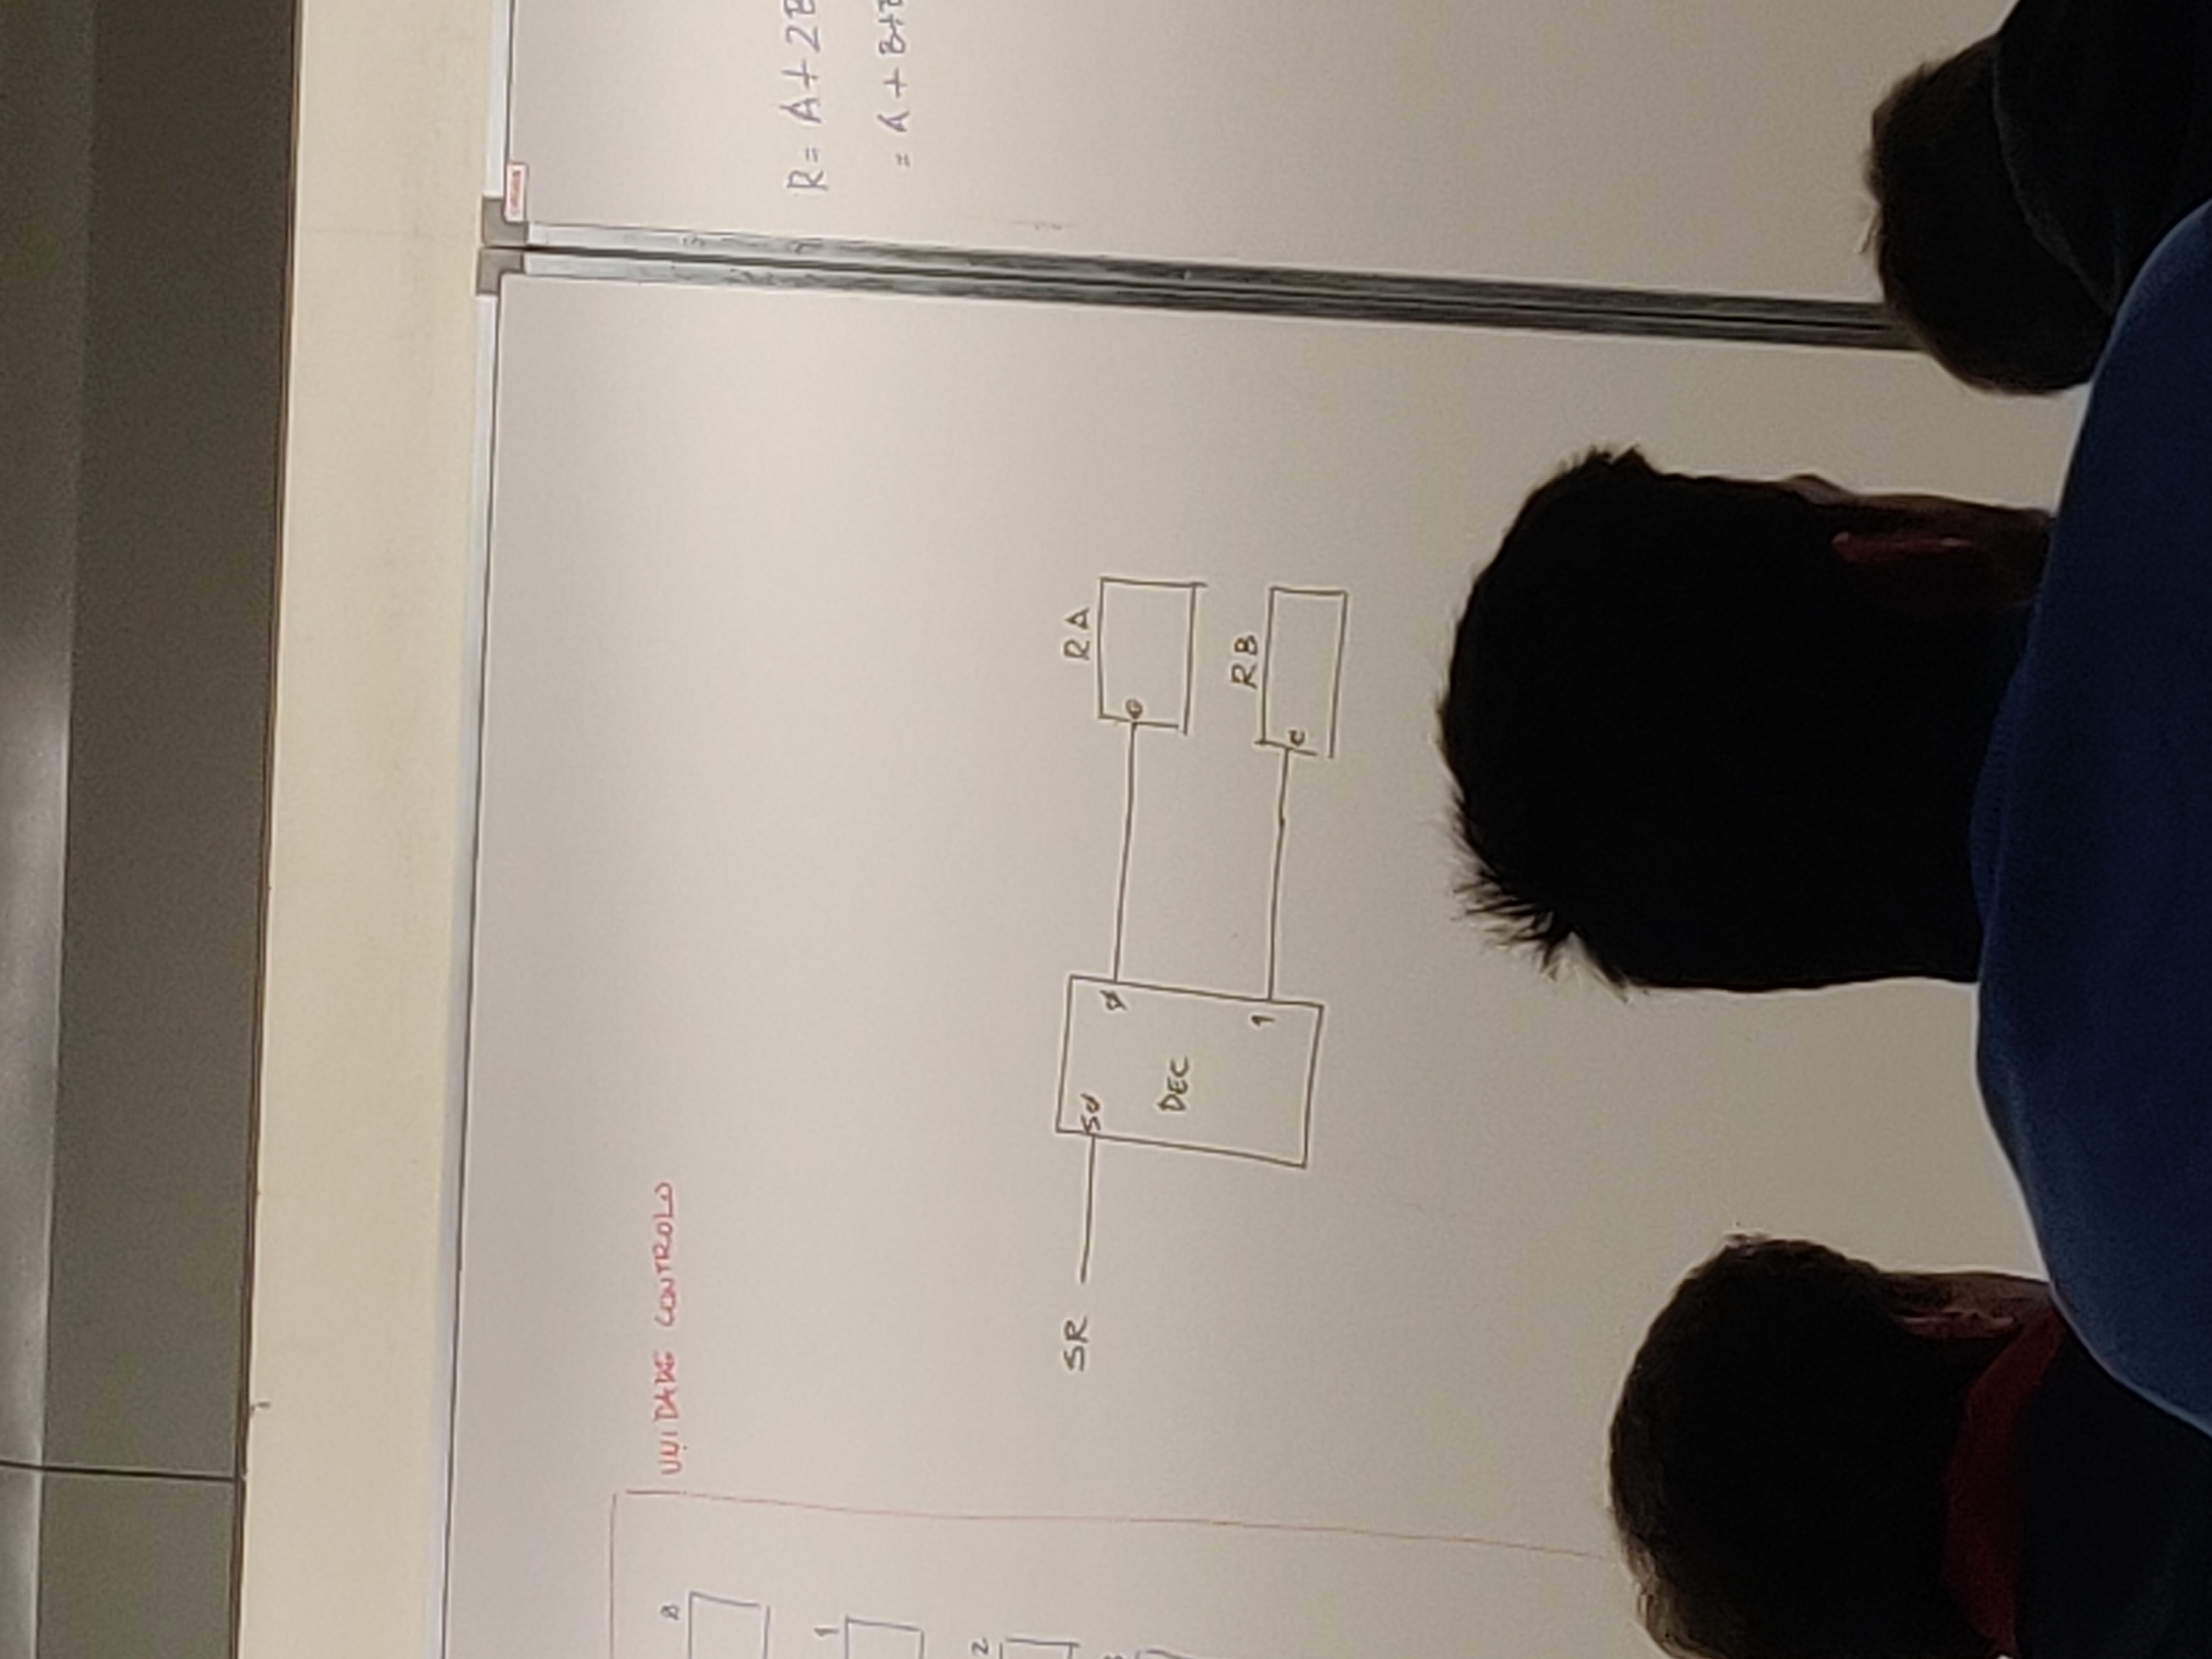 UNIDADE CONTROLO
1
2
SR
S0
DEC
0
1
RA
e
RB
e
R = A + 2B
= A + B+B